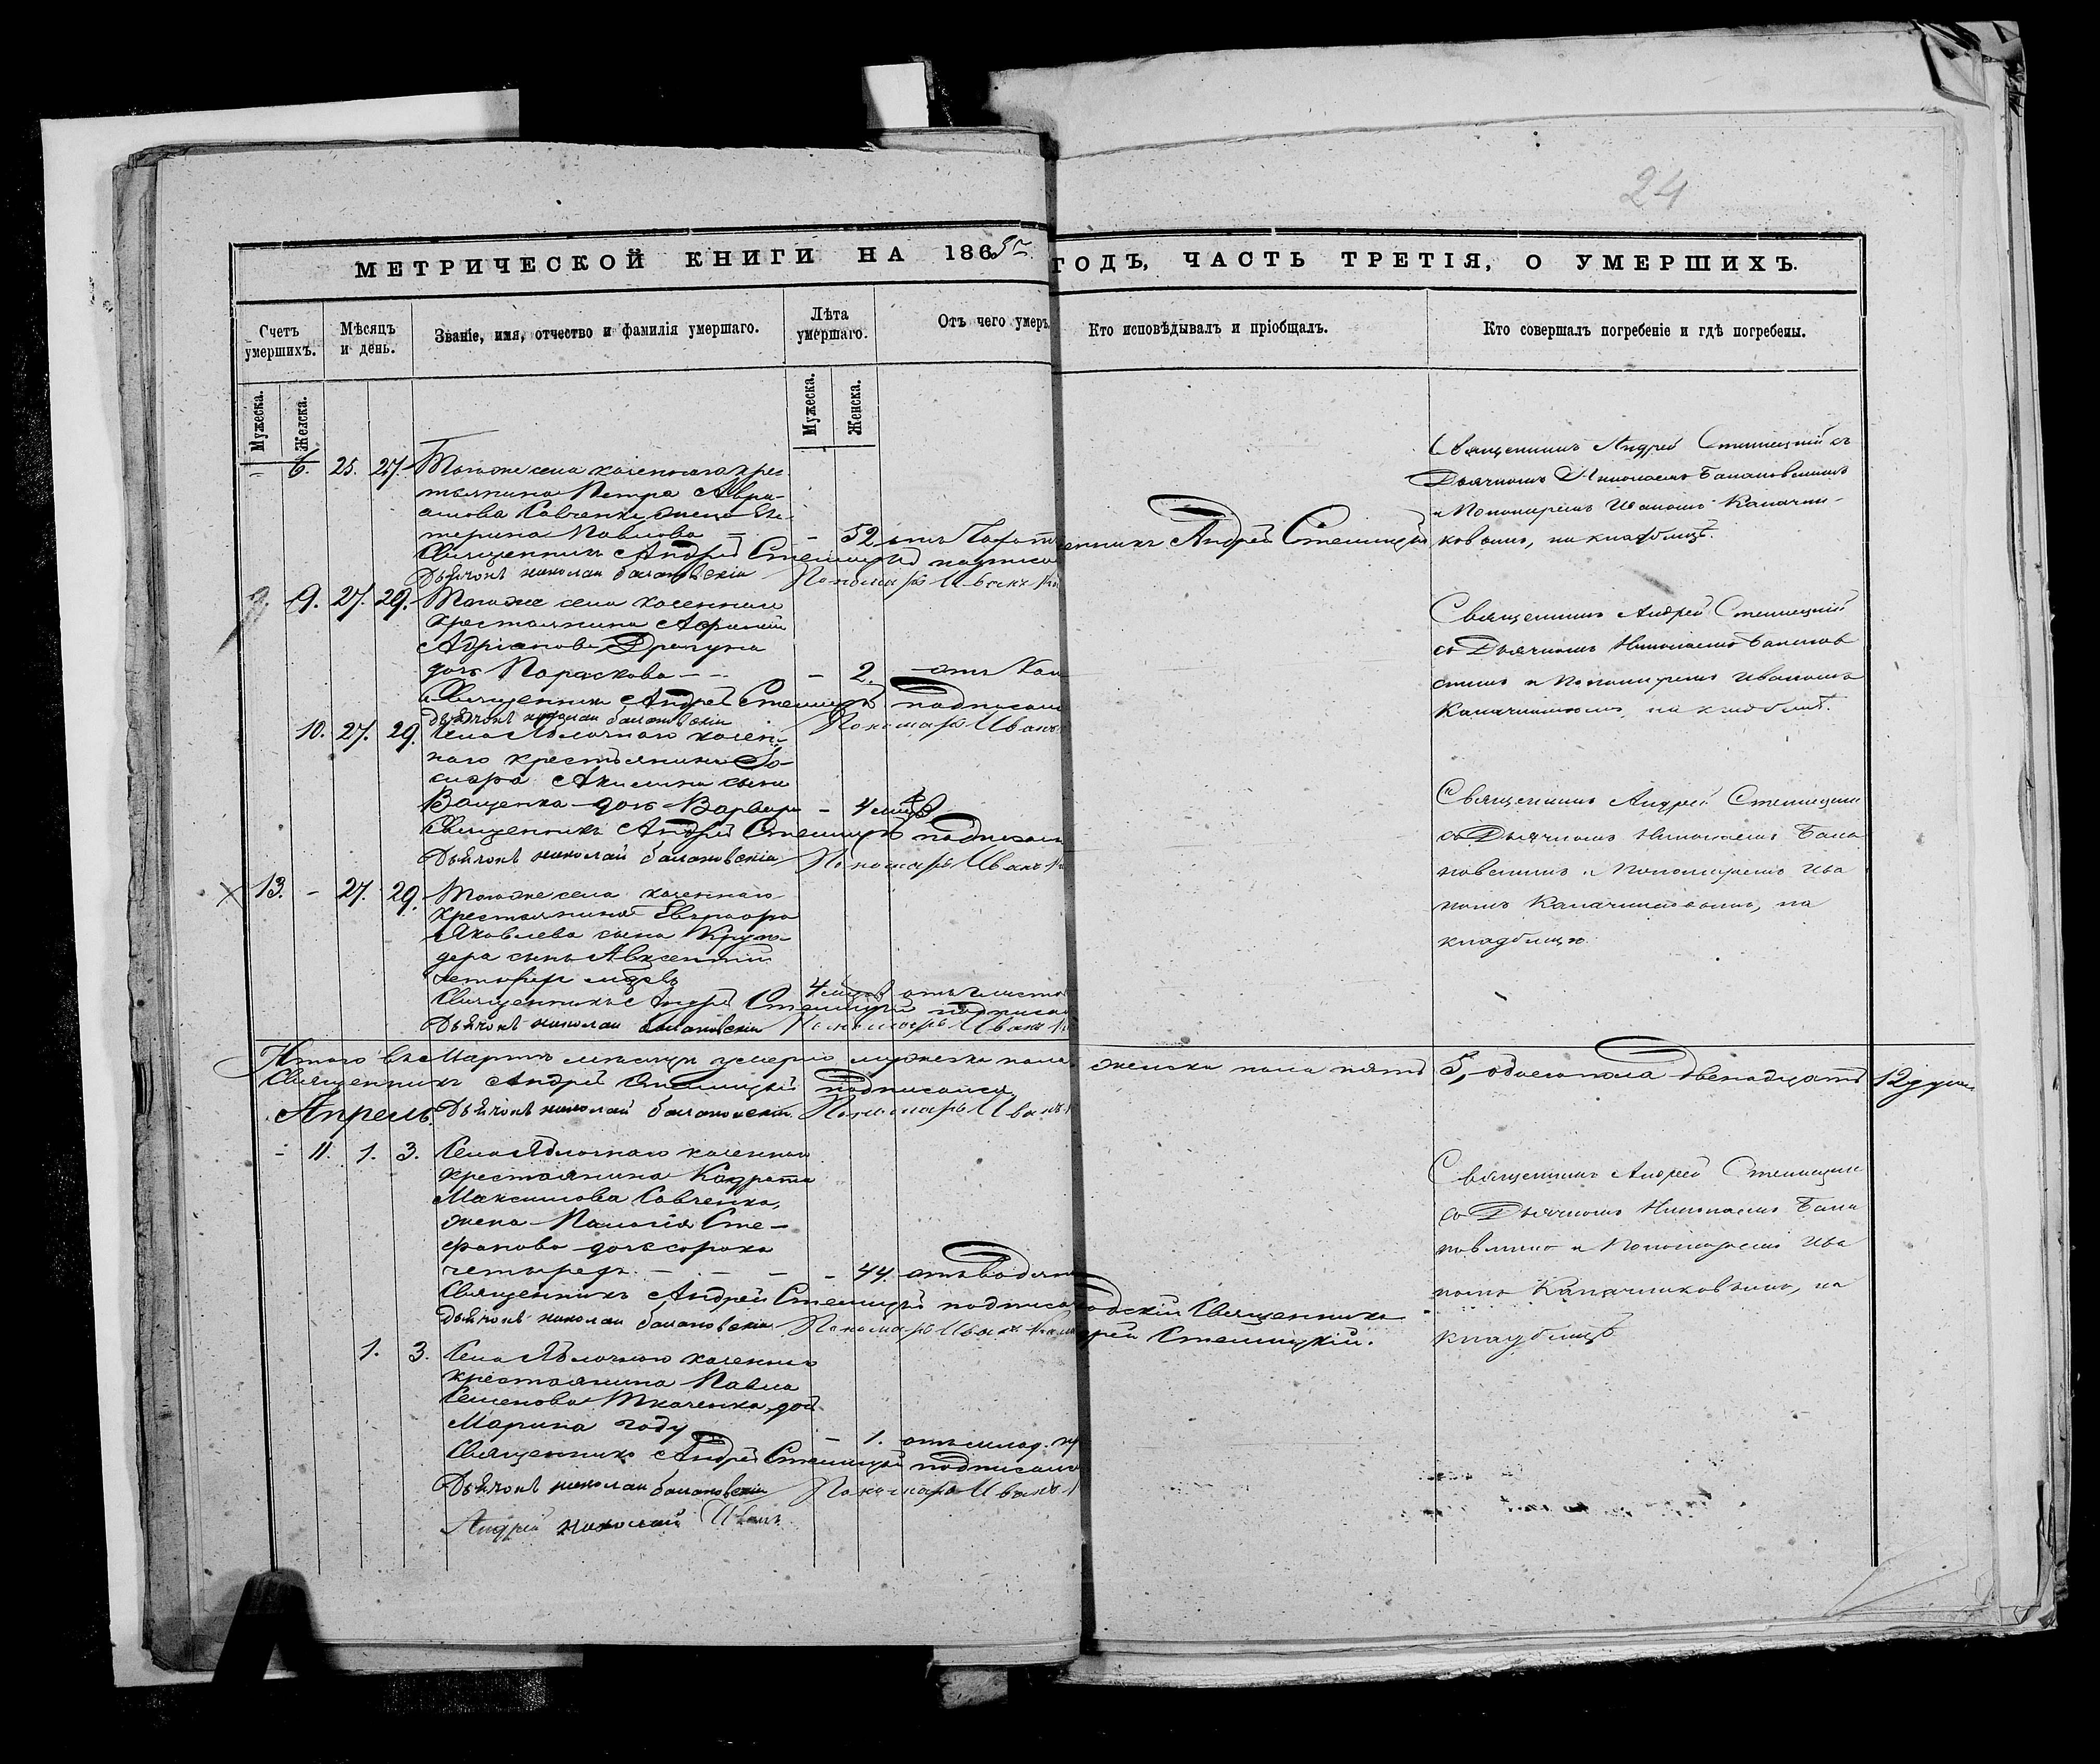 24
МЕТРИЧЕСКОЙ КНИГИ НА 1865 ГОДЪ, ЧАСТЬ ТРЕТІЯ, О УМЕРШИХЪ.
Счетъ умершихъ.
Мѣсяцъ и день.
Званіе, имя, отчество и фамилія умершаго.
Лѣта умершаго.
Отъ чего умеръ
Кто исповѣдывалъ и пріобщалъ.
Кто совершалъ погребеніе и гдѣ погребены.
Мужеска.
Женска.
Мужеска.
Женска.
6. 25. 27. Тогоже села казеннаго крес
тьянина Петра Авра-
амова Савченка жена Ека
терина Павлова - - 52 отъ
Священникъ Андрей Стешицкій
Священникъ Андрей Стешицкій подписа
Дьячокъ николай балановскій Пономарь Иванъ
Священникъ Андрей Стешицкій съ
Дьячкомъ Николаемъ Балановскимъ
и Пономаремъ Иваномъ Калачни-
ковымъ, на кладбищѣ.
9. 27. 29. Тогоже села казеннаго
крестьянина
Адріанова
дочь Параскева - - - 2. отъ
Священникъ Андрей Стешицкій подписал
Дьячокъ николай балановскій Пономарь Иванъ
Священникъ Андрей Стешицкій
съ Дьячкомъ Николаемъ Баланов
скимъ и Пономаремъ Иваномъ
Калачниковымъ, на кладбищѣ.
10. 27. 29. Села Яблочнаго казен-
наго крестьянина Іо-
сифа Акимина сына
Ващенка дочь Варвара - 4 мѣс
Священникъ Андрей Стешицкій подписал
Дьячокъ николай балановскій Пономарь Иванъ
Священникъ Андрей Стешицкій
съ Дьячкомъ Николаемъ Бала
новскимъ и Пономаремъ Ива
номъ Калачниковымъ, на
кладбищѣ.
13. - 27. 29. Тогоже села казеннаго
крестьянина
Яковлева сына
сынъ Авксентій
4 отъ
Священникъ Андрей Стешицкій подписал
Дьячокъ николай балановскій Пономарь Иванъ
Итого въ Мартѣ мѣсяцѣ умерло мужеска пола женска пола пять 5, обоего пола двенадцать 12 душъ
Священникъ Андрей Стешицкій подписался
Апрель. Дьячокъ николай балановскій Пономарь Иванъ
- 11. 1. 3. Села Яблочнаго казеннаго
крестьянина Кондрата
Максимова Савченка,
жена Палагія Сте-
фанова дочь сорока
четырехъ - - - - 44. отъ водян
Священникъ Андрей Стешицкій подписа
Дьячокъ николай балановскій Пономарь Иванъ
Священникъ
Стешицкій.
Священникъ Андрей Стешицкій
съ Дьячкомъ Николаемъ Бала
новскимъ и Пономаремъ Ива
номъ Калачниковымъ, на
кладбищѣ
1. 3. Села Яблочнаго казеннаго
крестьянина Павла
Семенова Ткаченка дочь
Марина году - 1. отъ млад.
Священникъ Андрей Стешицкій подписался
Дьячокъ николай балановскій Пономарь Иванъ
Андрей николай Иванъ